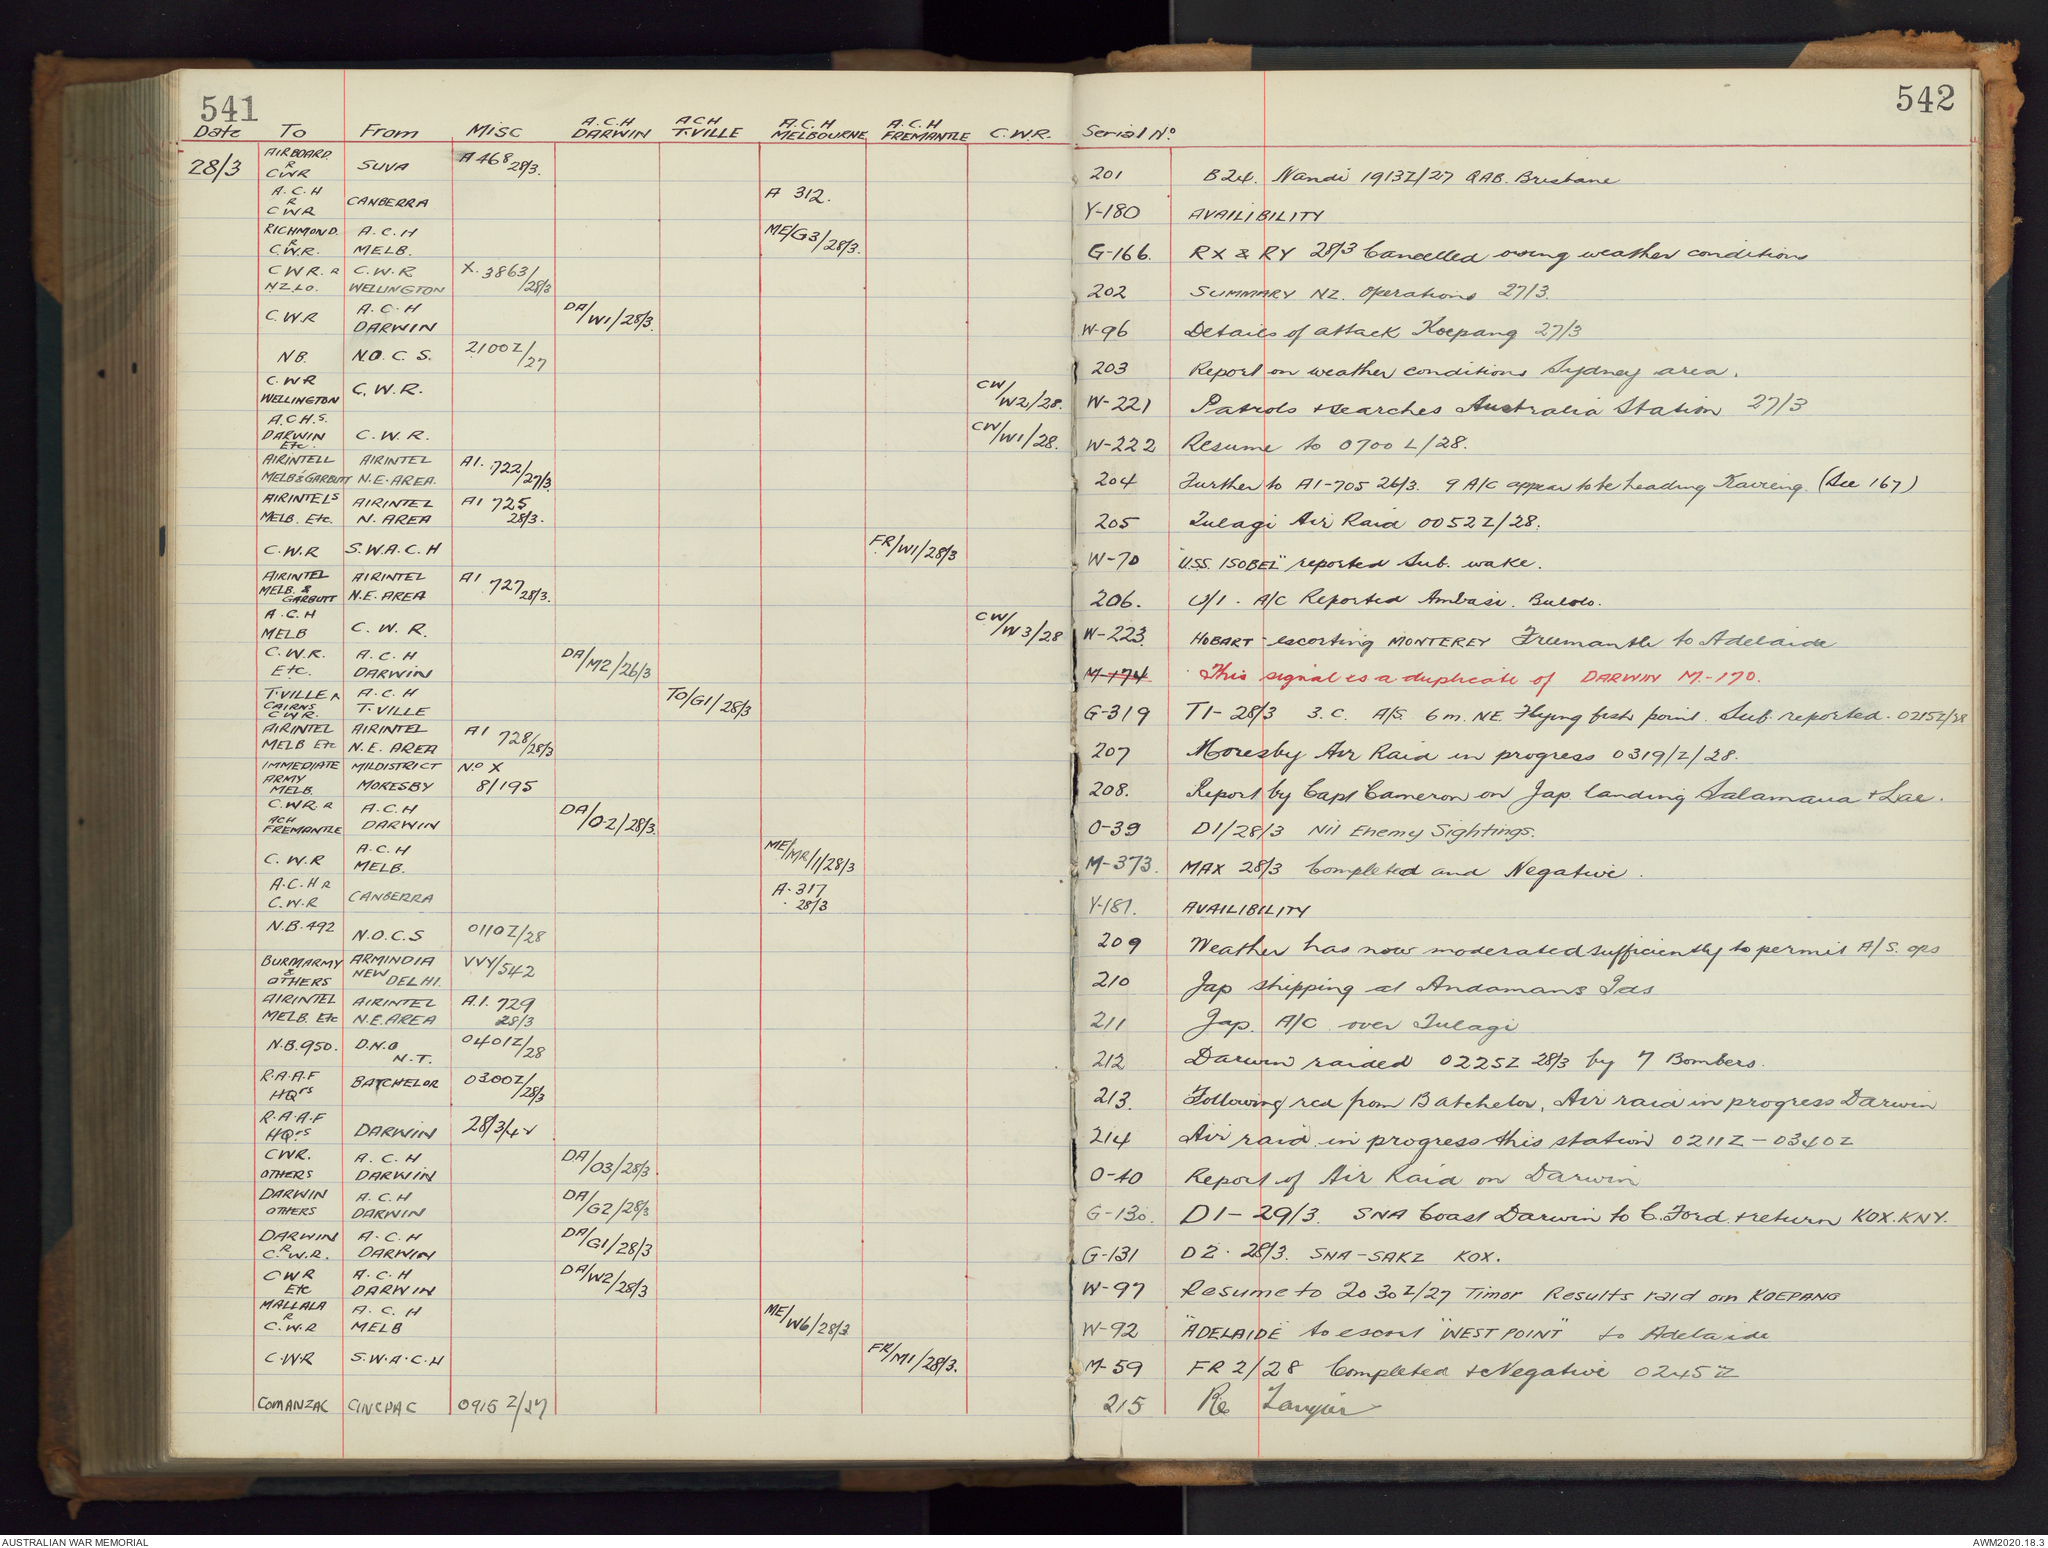 541
542
Date To From Misc A.C.H DARWIN ACH T.VILLE A.C.H MELBOURNE A.C.H FREMANTLE C.W.R. Serial No.
28/3 AIRBOARD. R CWR SUVA A 468 28/3. 201 B24. Nandi 1913Z/27 QAB. Brisbane
A.C.H R CWR CANBERRA A 312. Y-180 AVAILIBILITY
RICHMOND. R C.W.R. A.C.H MELB. ME/G3/28/3. G-166. RX & RY 28/3 Cancelled owing weather conditions
CWR. R NZ.LO. C.W.R WELLINGTON X. 3863/28/3 202 SUMMARY NZ. Operations 27/3.
C.W.R A.C.H DARWIN DA/W1/28/3. W-96 Details of attack Koepang 27/3
NB. N.O.C.S. 2100Z/27 203 Report on weather conditions Sydney area.
C.W.R WELLINGTON C.W.R. CW/W2/28. W-221 Patrols & searches Australia Station 27/3
A.C.H.S. DARWIN Etc. C.W.R. CW/W1/28. W-222 Resume to 0700 L/28.
AIRINTELL MELB & GARBUTT AIRINTEL N.E.AREA. A1. 722/27/3. 204 Further to A1-705 26/3. 9 A/C appear to be heading Kavieng. (See 167)
AIRINTELS MELB. Etc. AIRINTEL N. AREA A1 725 28/3. 205 Tulagi Air Raid 0052Z/28.
C.W.R S.W.A.C.H FR/W1/28/3 W-70 "U.S.S. ISOBEL" reported Sub. wake.
AIRINTEL MELB. & GARBUTT AIRINTEL N.E. AREA A1 727 28/3. 206. U/I. A/C Reported Ambasi. Bulolo.
A.C.H MELB C.W.R. CW/W3/28 W-223. HOBART - escorting MONTEREY Freemantle to Adelaide
C.W.R. Etc. A.C.H DARWIN DA/M2/26/3 M-174 This signal is a duplicate of DARWIN M.-170.
T.VILLE R CAIRNS C.W.R. A.C.H T.VILLE TO/G1/28/3 G-319 T1- 28/3 3.C. A/S. 6 m. NE. Flying fish point. Sub. reported. 0215Z/28
AIRINTEL MELB Etc AIRINTEL N.E. AREA A1 728/28/3 207 Moresby Air Raid in progress 0319/Z/28.
IMMEDIATE ARMY MELB. MILDISTRICT MORESBY No X 8/195 208. Report by Capt Cameron on Jap. landing Salamaua & Lae.
C.W.R. R ACH FREMANTLE A.C.H DARWIN DA/O-2/28/3. O-39 D1/28/3 Nil Enemy Sightings.
C.W.R A.C.H MELB. ME/MR/1/28/3 M-373. MAX 28/3 Completed and Negative.
A.C.H R C.W.R CANBERRA A-317 28/3 Y-181. AVAILIBILITY
N.B.492 N.O.C.S 0110Z/28 209 Weather has now moderated sufficiently to permit A/S. ops
BURMARMY & OTHERS ARMINDIA NEW DELHI. VVY/542 210 Jap shipping at Andamans Ids
AIRINTEL MELB. Etc AIRINTEL N.E.AREA A.1. 729 28/3 211 Jap. A/C. over Tulagi
N.B.950. D.N.O N.T. 0401Z/28 212 Darwin raided 0225Z 28/3 by 7 Bombers.
R.A.A.F HQrs BATCHELOR 0300Z/28/3 213. Following rcd from Batchelor, Air raid in progress Darwin
R.A.A.F HQrs DARWIN 28/3/42 214 Air raid in progress this station 0211Z - 0340Z
CWR. OTHERS A.C.H DARWIN DA/O3/28/3. O-40 Report of Air Raid on Darwin
DARWIN OTHERS A.C.H DARWIN DA/G2/28/3 G-130. D1- 29/3. SNA Coast Darwin to C. Ford. & return KOX. KNY.
DARWIN R C.W.R. A.C.H DARWIN DA/G1/28/3 G-131 D2. 28/3. SNA-SAKZ KOX.
CWR Etc A.C.H DARWIN DA/W2/28/3 W-97 Resume to 2030Z/27 Timor Results raid on KOEPANG
MALLALA R C.W.R A.C.H MELB ME/W6/28/3 W-92 "ADELAIDE" to escort "WEST POINT" to Adelaide
C.W.R S.W.A.C.H FR/M1/28/3. M-59 FR 2/28 Completed & Negative 0245Z
COMANZAC CINCPAC 0915Z/27 215 Re
AUSTRALIAN WAR MEMORIAL
AWM2020.18.3